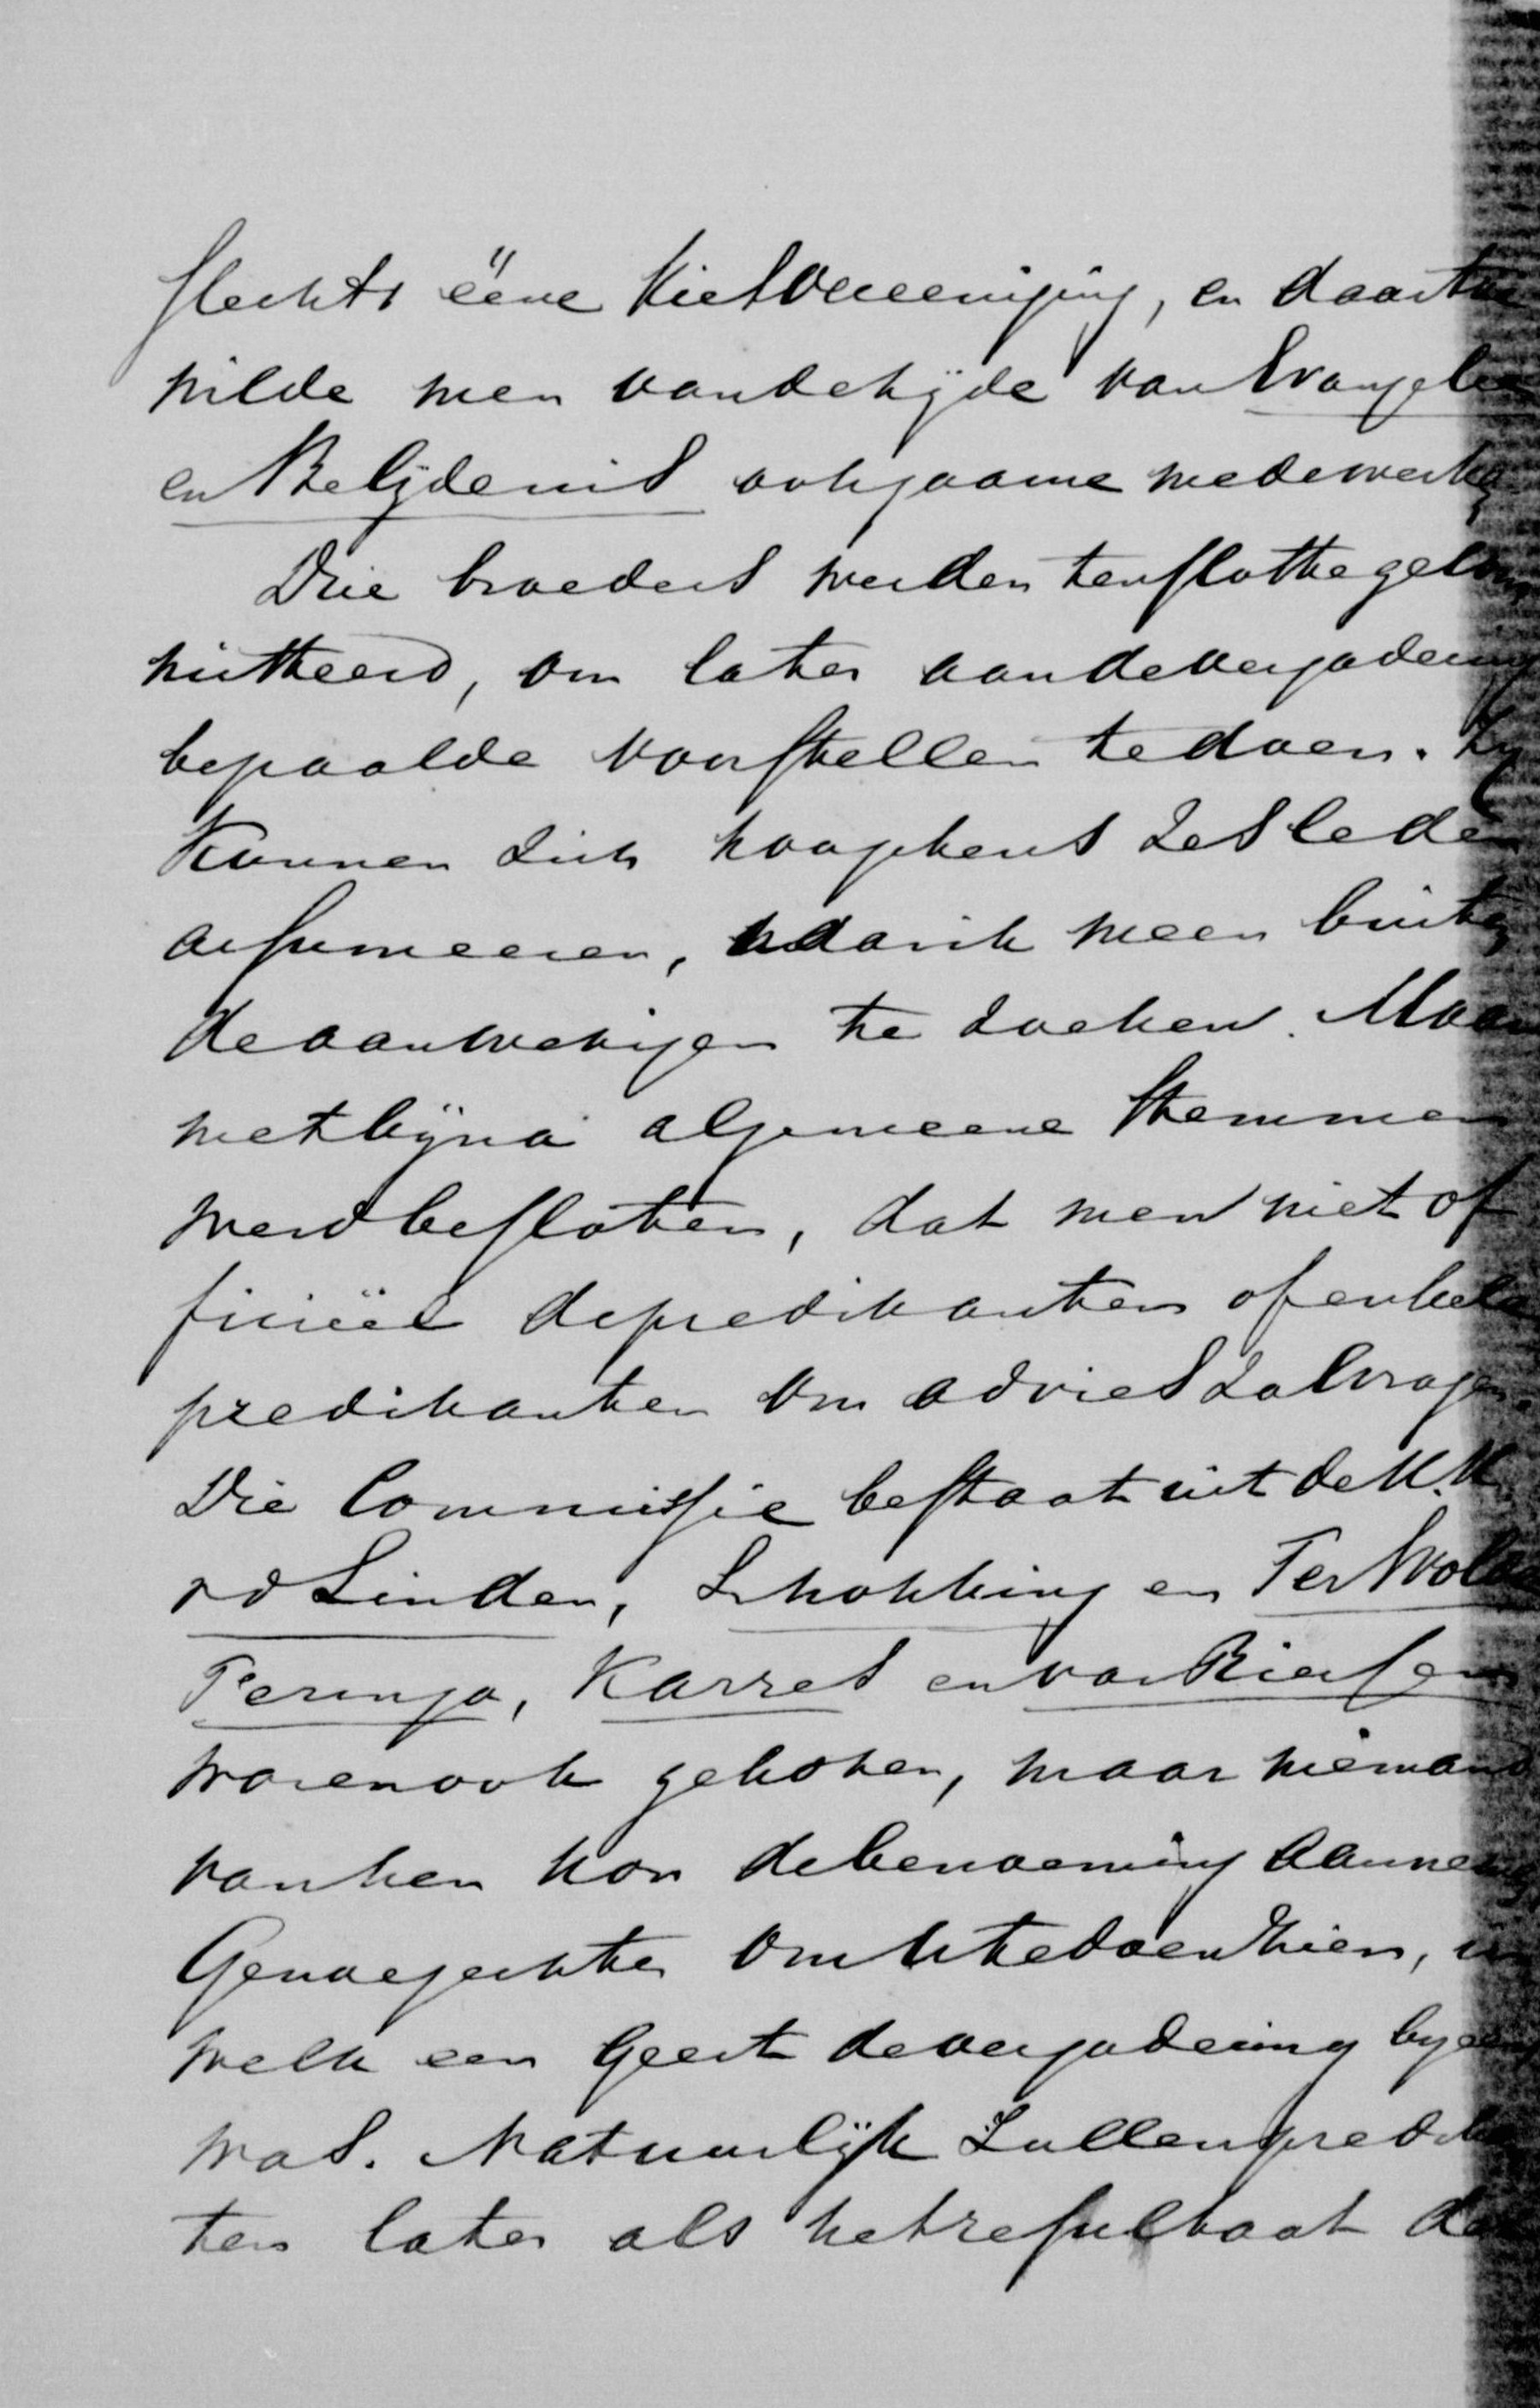 slechts ééne Kiesvereeniging, en daartoe
wilde men van de zijde van Evangelie
en Belijdenis ook gaarne medewerken
Drie broeders werden ten slotte gekom
mitteerd, om later aan de vergadering
bepaalde voorstellen te doen. Zij
Kunnen zich hoogstens zes leden
assumeeren, ook meen buiten
de aanwezigen te zoeken. Maar
met bijna algemeene stemmen
werd besloten, dat men niet of
ficiëel de predikanten of enkele
predikanten om advies zal vragen.
Die Commissie bestaat uit de H.H.
v d Linden, Schokking en Ter Wolde
Peringa, Karres en van Riessen
waren ook gekozen, maar niemand
van hen kon de benoeming aannemen
Genoeg echter om U te doen zien, in
welk een Geest de vergadering bijeen
was. Natuurlijk zullen predikan
ten later als het resultaat